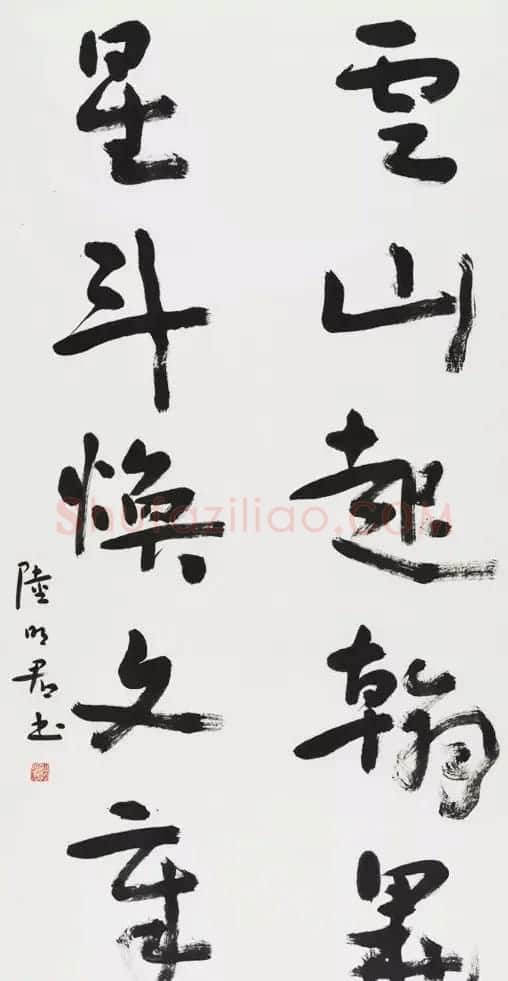 雲山起翰墨
星斗煥文章
陸明君書
Shufaziliao.COM